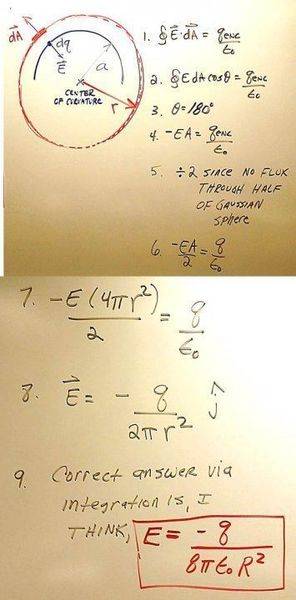 dA
dq
E
a
CENTER
OF CURVATURE
r
1. ∮E⃗·dA⃗ = qenc/ε₀
2. ∮EdAcosθ = qenc/ε₀
3. θ=180°
4. -EA = qenc/ε₀
5. ÷2 SINCE NO FLUX
THROUGH HALF
OF GAUSSIAN
SPHERE
6. -EA/2 = q/ε₀
7. -E(4πr²)/2 = q/ε₀
8. E⃗ = - q/2πr² ĵ
9. Correct answer via
integration is, I
THINK, E = -q/8πε₀R²